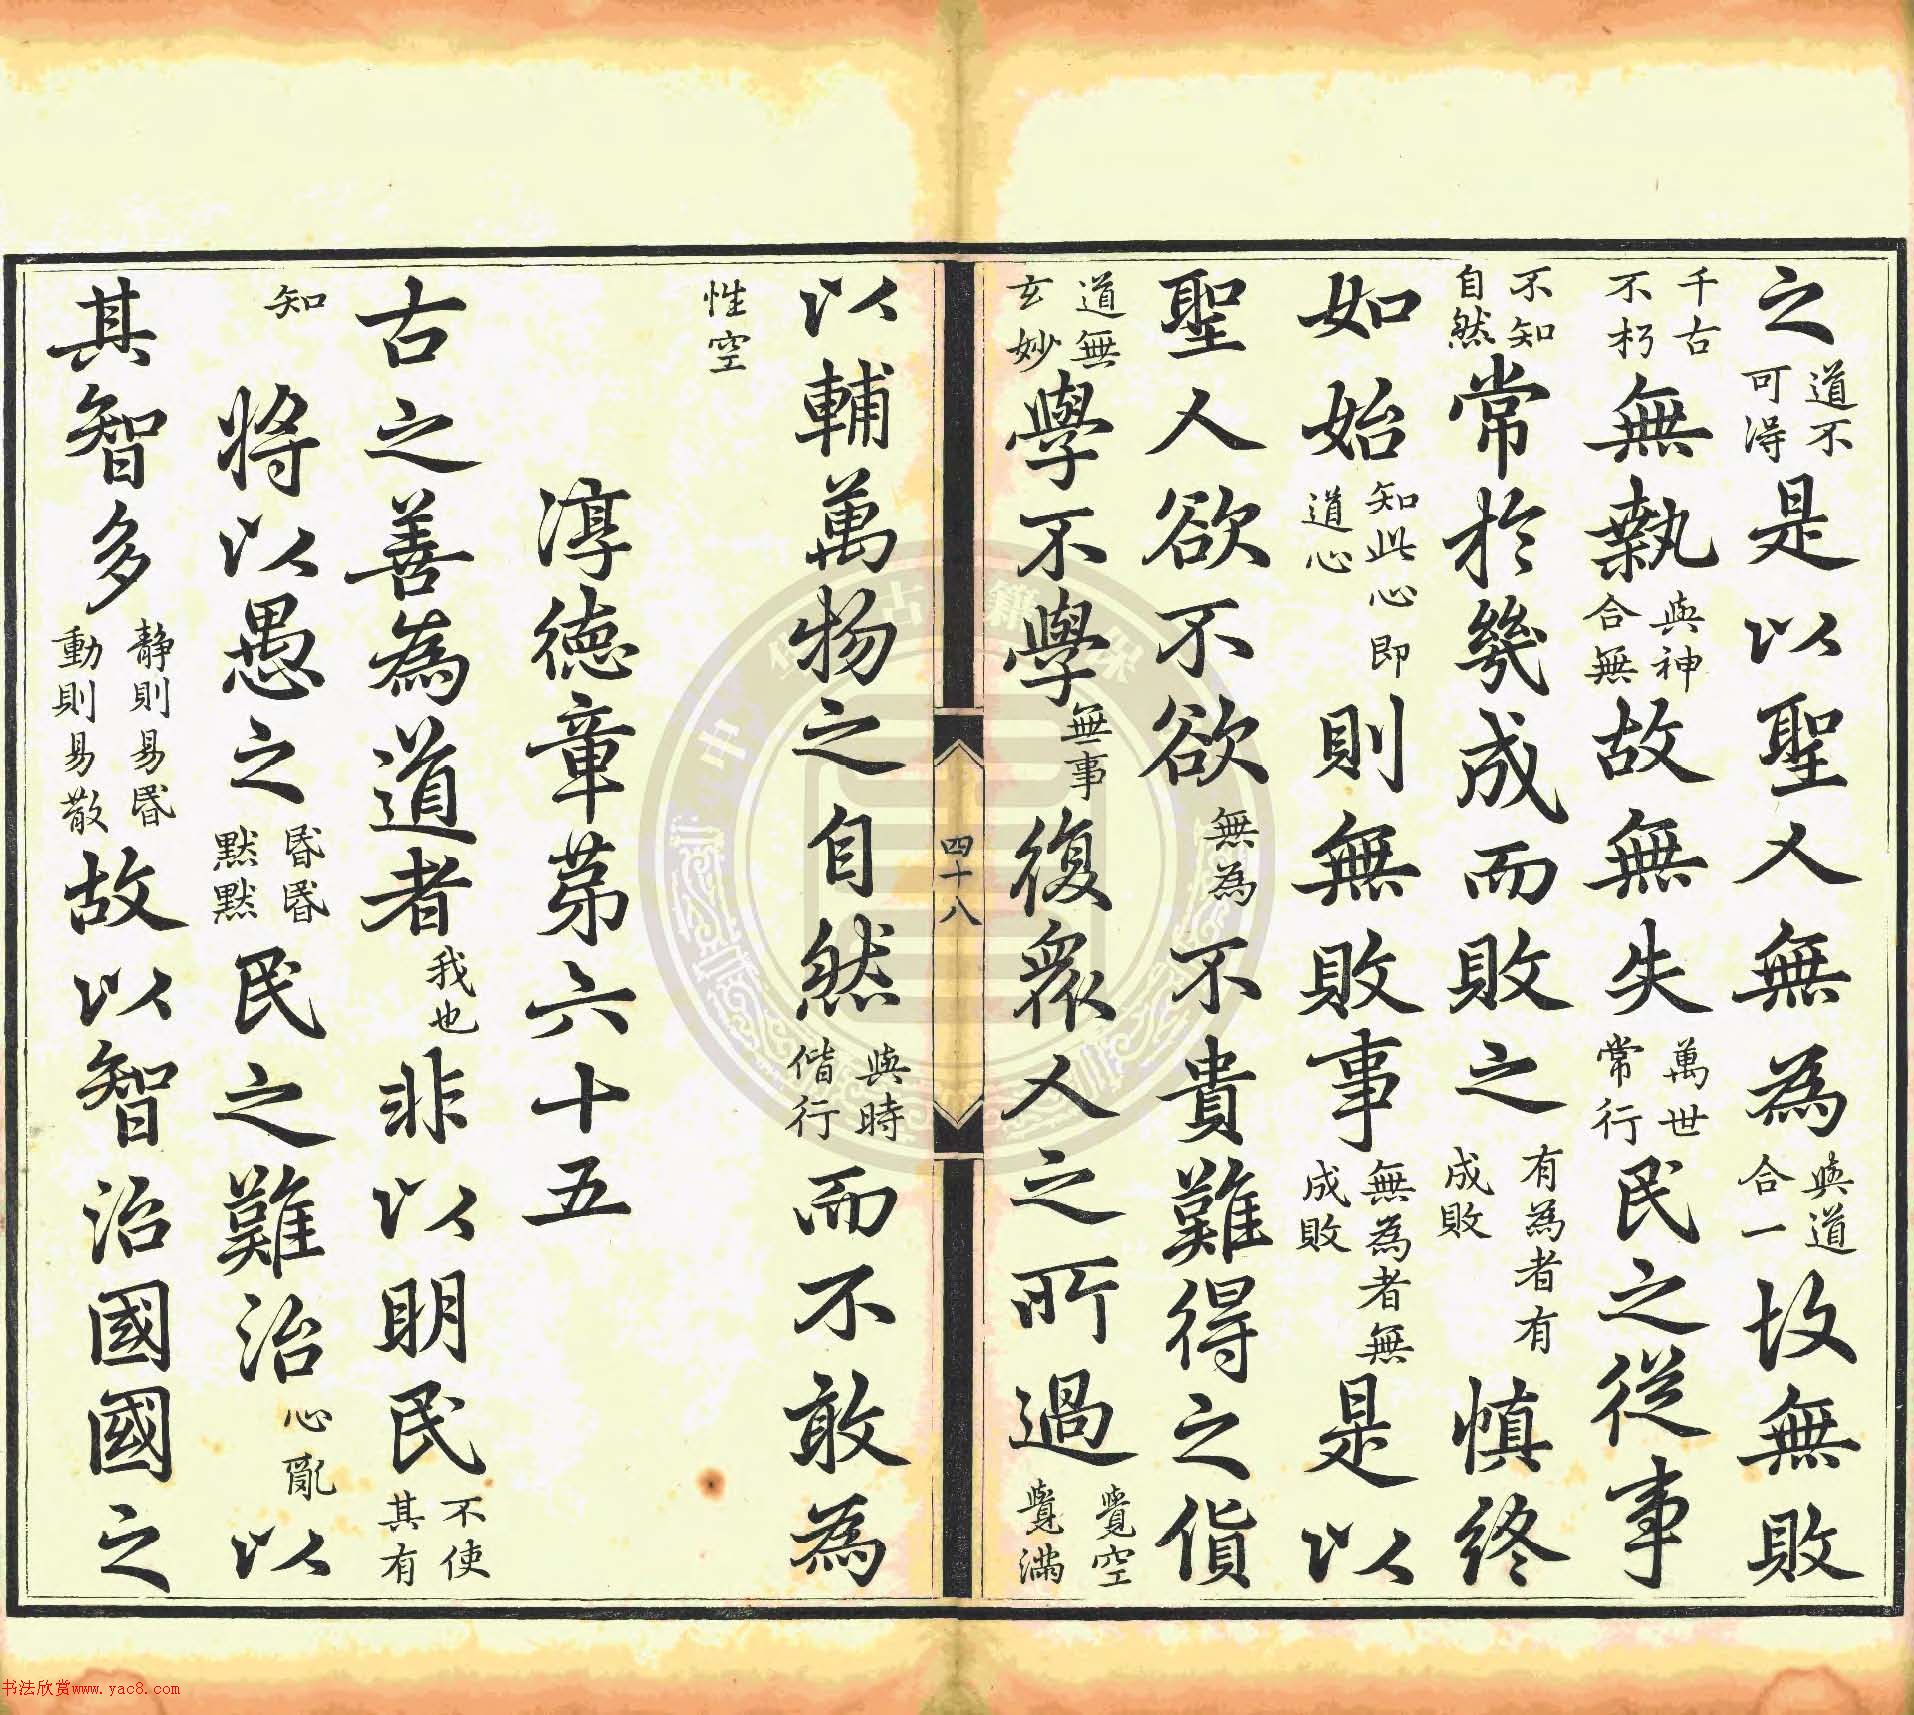 之道不可得是以聖人無為與道合一故無敗
千古不朽無執與神合無故無失萬世常行民之從事
不知自然常於幾成而敗之有為者有成敗慎終
如始知此心即道心則無敗事無為者無成敗是以
聖人欲不欲無為不貴難得之貨
道無玄妙學不學無事復眾人之所過覺空覺滿
四十八
以輔萬物之自然與時偕行而不敢為
性空
淳德章第六十五
古之善為道者我也非以明民不使其有
知將以愚之昬昬默默民之難治心亂以
其智多靜則易昬動則易散故以智治國國之
书法欣赏www.yac8.com